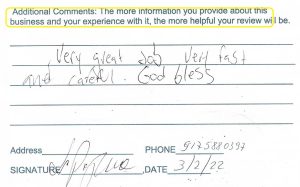 Additional Comments: The more information you provide about this
business and your experience with it, the more helpful your review will be.
Very great job Very fast
and careful. God bless
Address
PHONE 9175880397
SIGNATURE
DATE 3/2/22